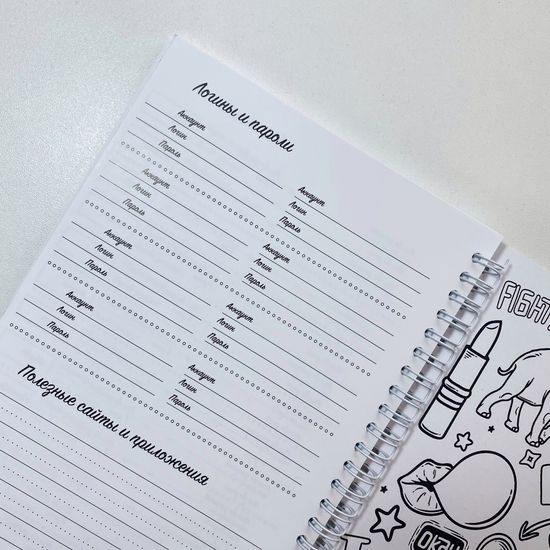 Логины и пароли
Аккаунт
Логин
Пароль
Аккаунт
Логин
Пароль
Аккаунт
Логин
Пароль
Аккаунт
Логин
Пароль
Аккаунт
Логин
Пароль
Аккаунт
Логин
Пароль
Аккаунт
Логин
Пароль
Аккаунт
Логин
Пароль
Полезные сайты и приложения
FIGHT